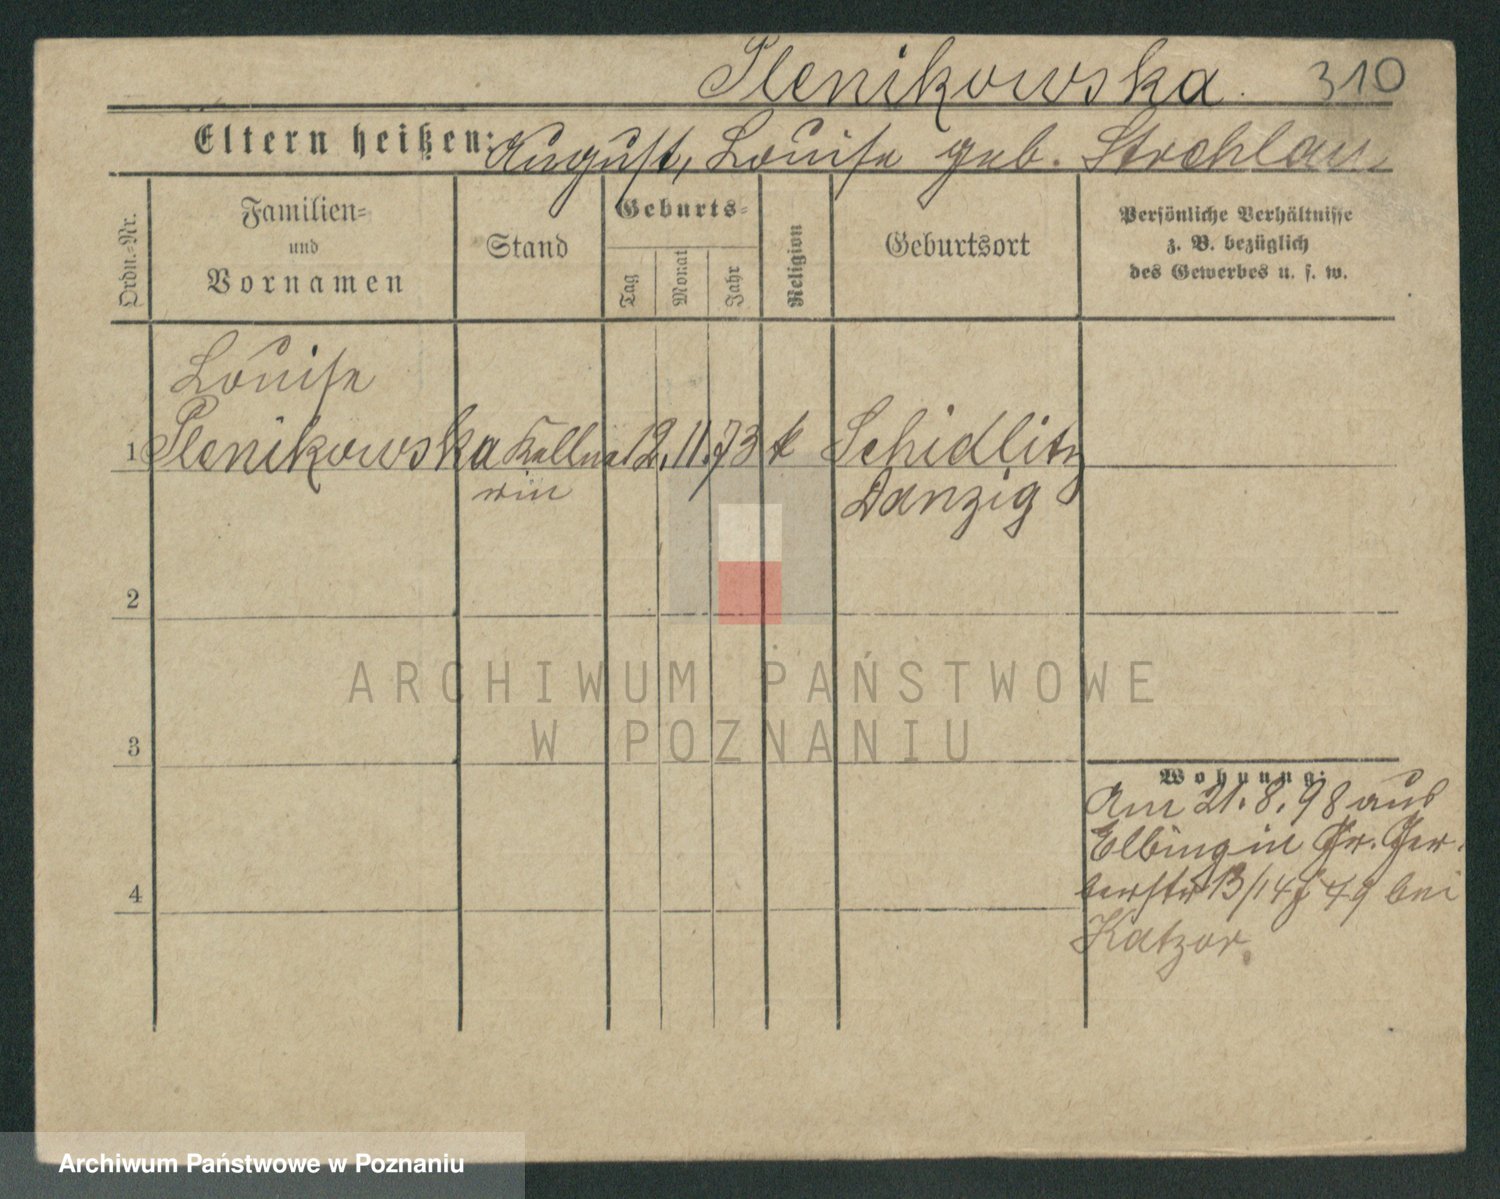 Plenikowska. 310
Eltern heißen: August, Louise geb. Strehlau
Ordn.-Nr.
Familien-
und
Vornamen
Stand
Geburts-
Tag
Monat
Jahr
Religion
Geburtsort
Persönliche Verhältnisse
z. B. bezüglich
des Gewerbes u. s. w.
Louise
1 Plenikowska Kellne 12. 11. 73 k Schidlitz
rin Danzig
2
3
Wohnung:
Am 21. 8. 98 aus
Elbing in Gr. Ger-
4
berstr 13/14 bei
Katzor.
ARCHIWUM PAŃSTWOWE
W POZNANIU
Archiwum Państwowe w Poznaniu